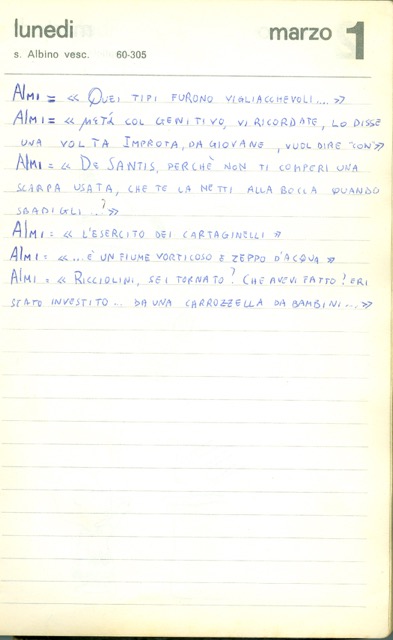 lunedi marzo 1
s. Albino vesc. 60-305
Almi = « Quei tipi furono vigliacchevoli.... »
Almi = « Metá col genitivo, vi ricordate, lo disse
una volta Improta, da giovane, vuol dire "con"»
Almi = « De Santis, perchè non ti comperi una
scarpa usata, che te la metti alla bocca quando
sbadigli...? »
Almi = « L'esercito dei cartaginelli »
Almi = « ...è un fiume vorticoso e zeppo d'acqua »
Almi = « Ricciolini, sei tornato? Che avevi fatto? Eri
stato investito... da una carrozzella da bambini... »